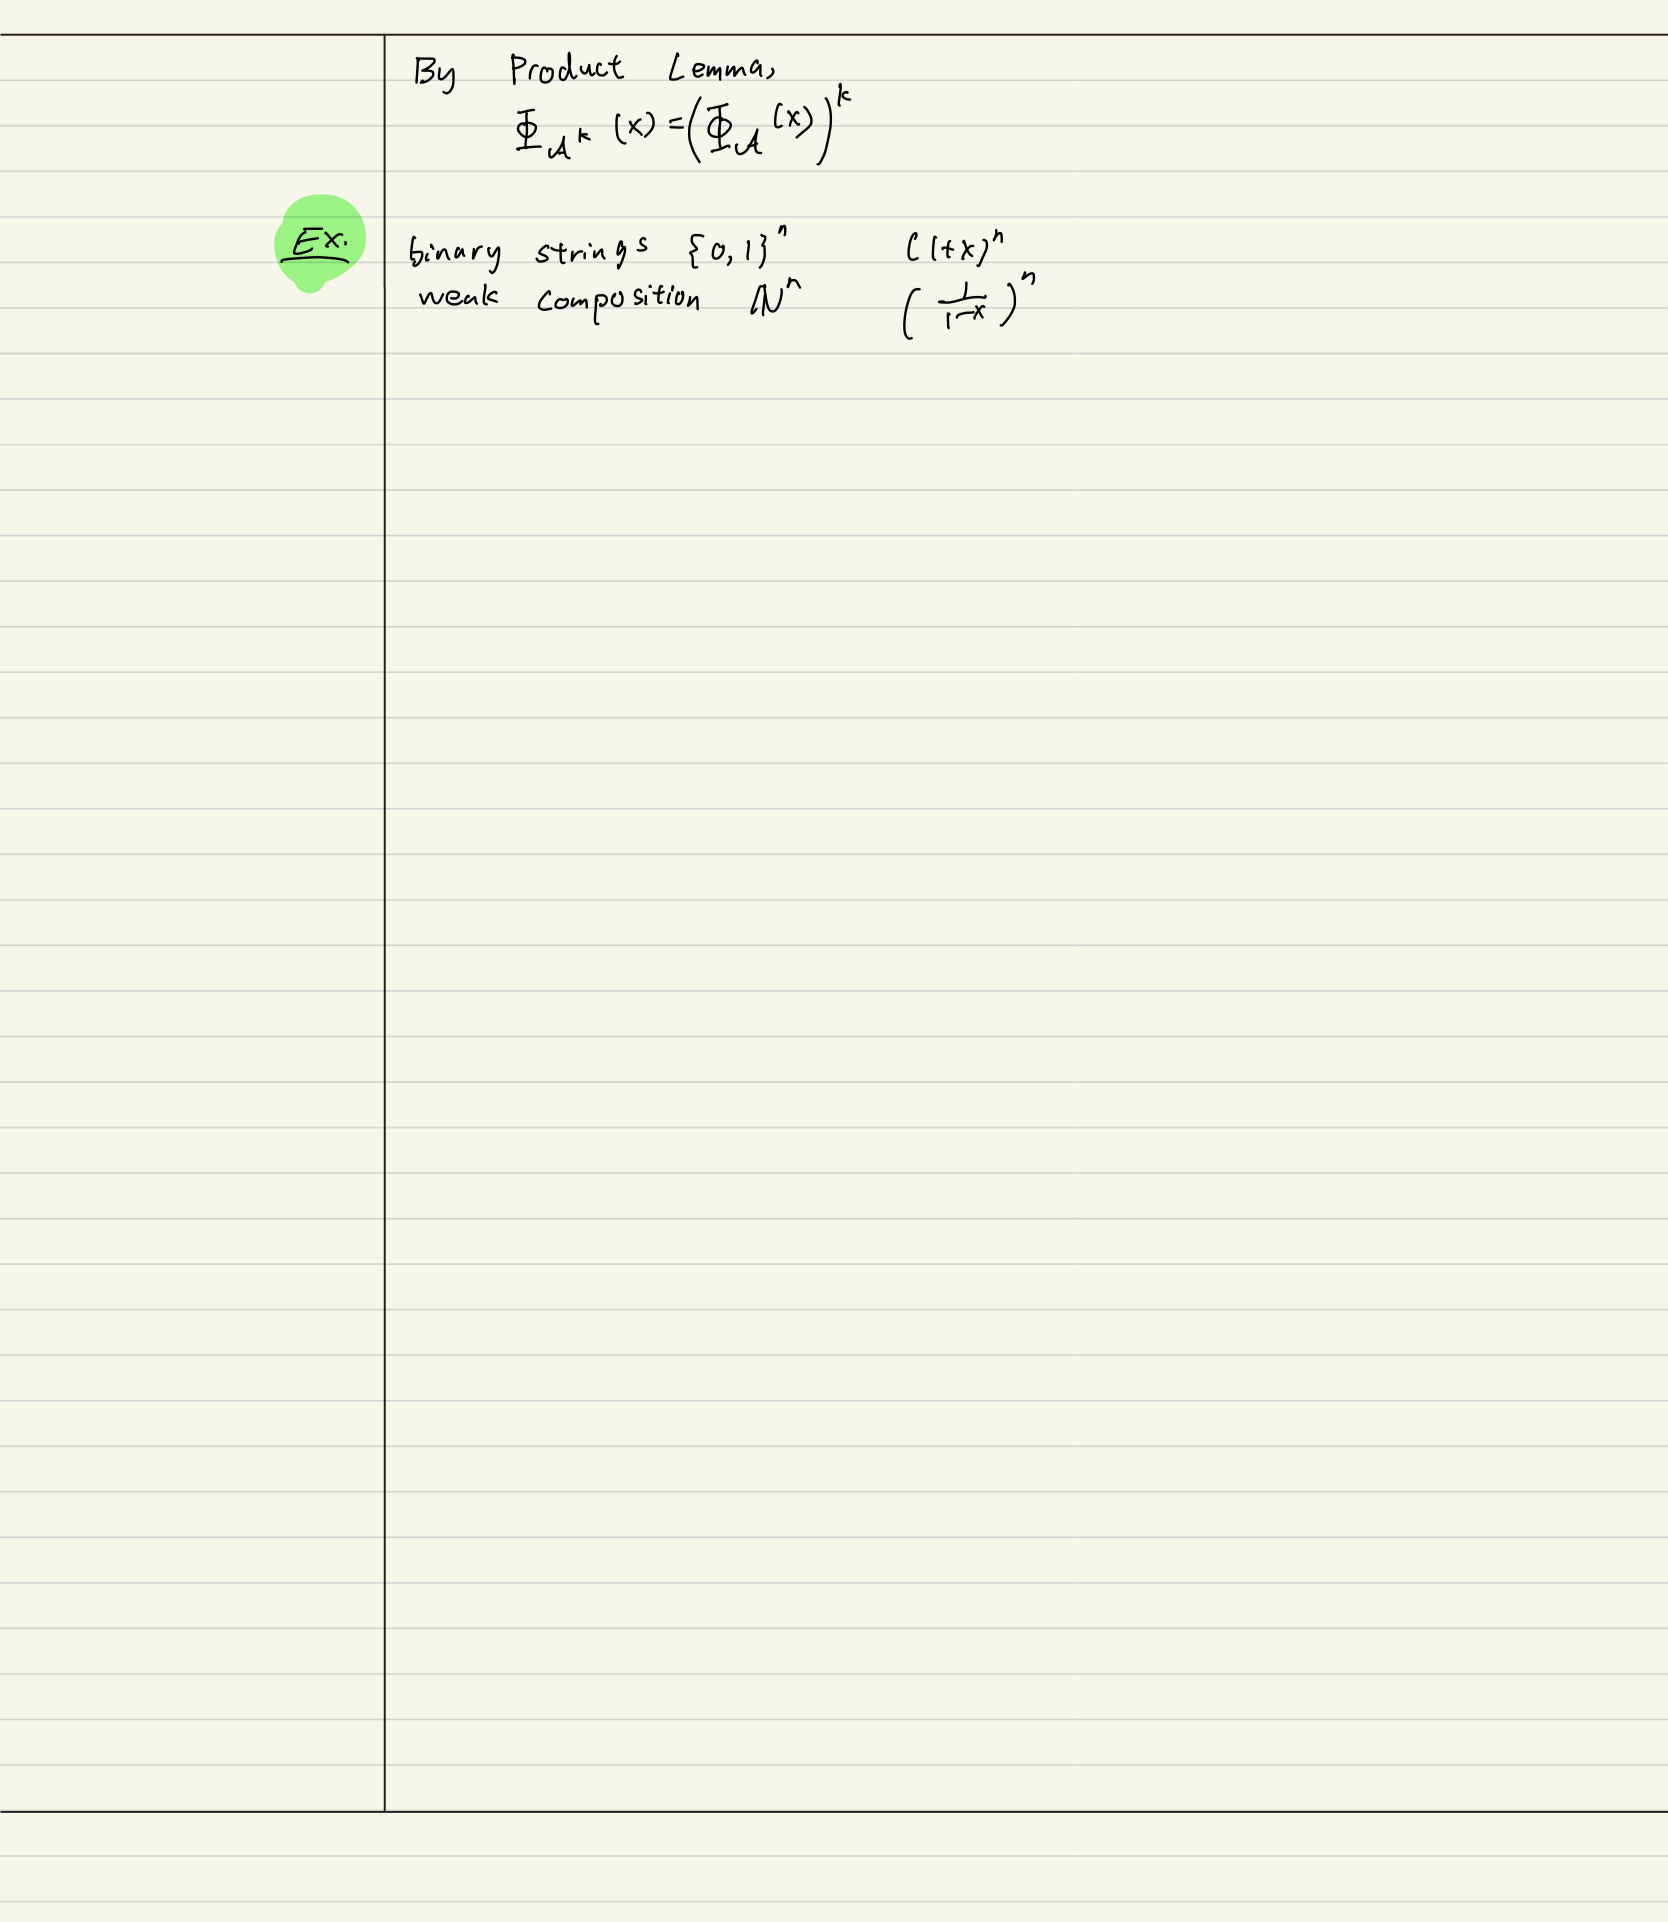 By Product Lemma,
Φ_𝒜^k (x) = (Φ_𝒜 (x))^k
Ex. binary strings {0,1}^n (1+x)^n
weak composition ℕ^n (1/(1-x))^n